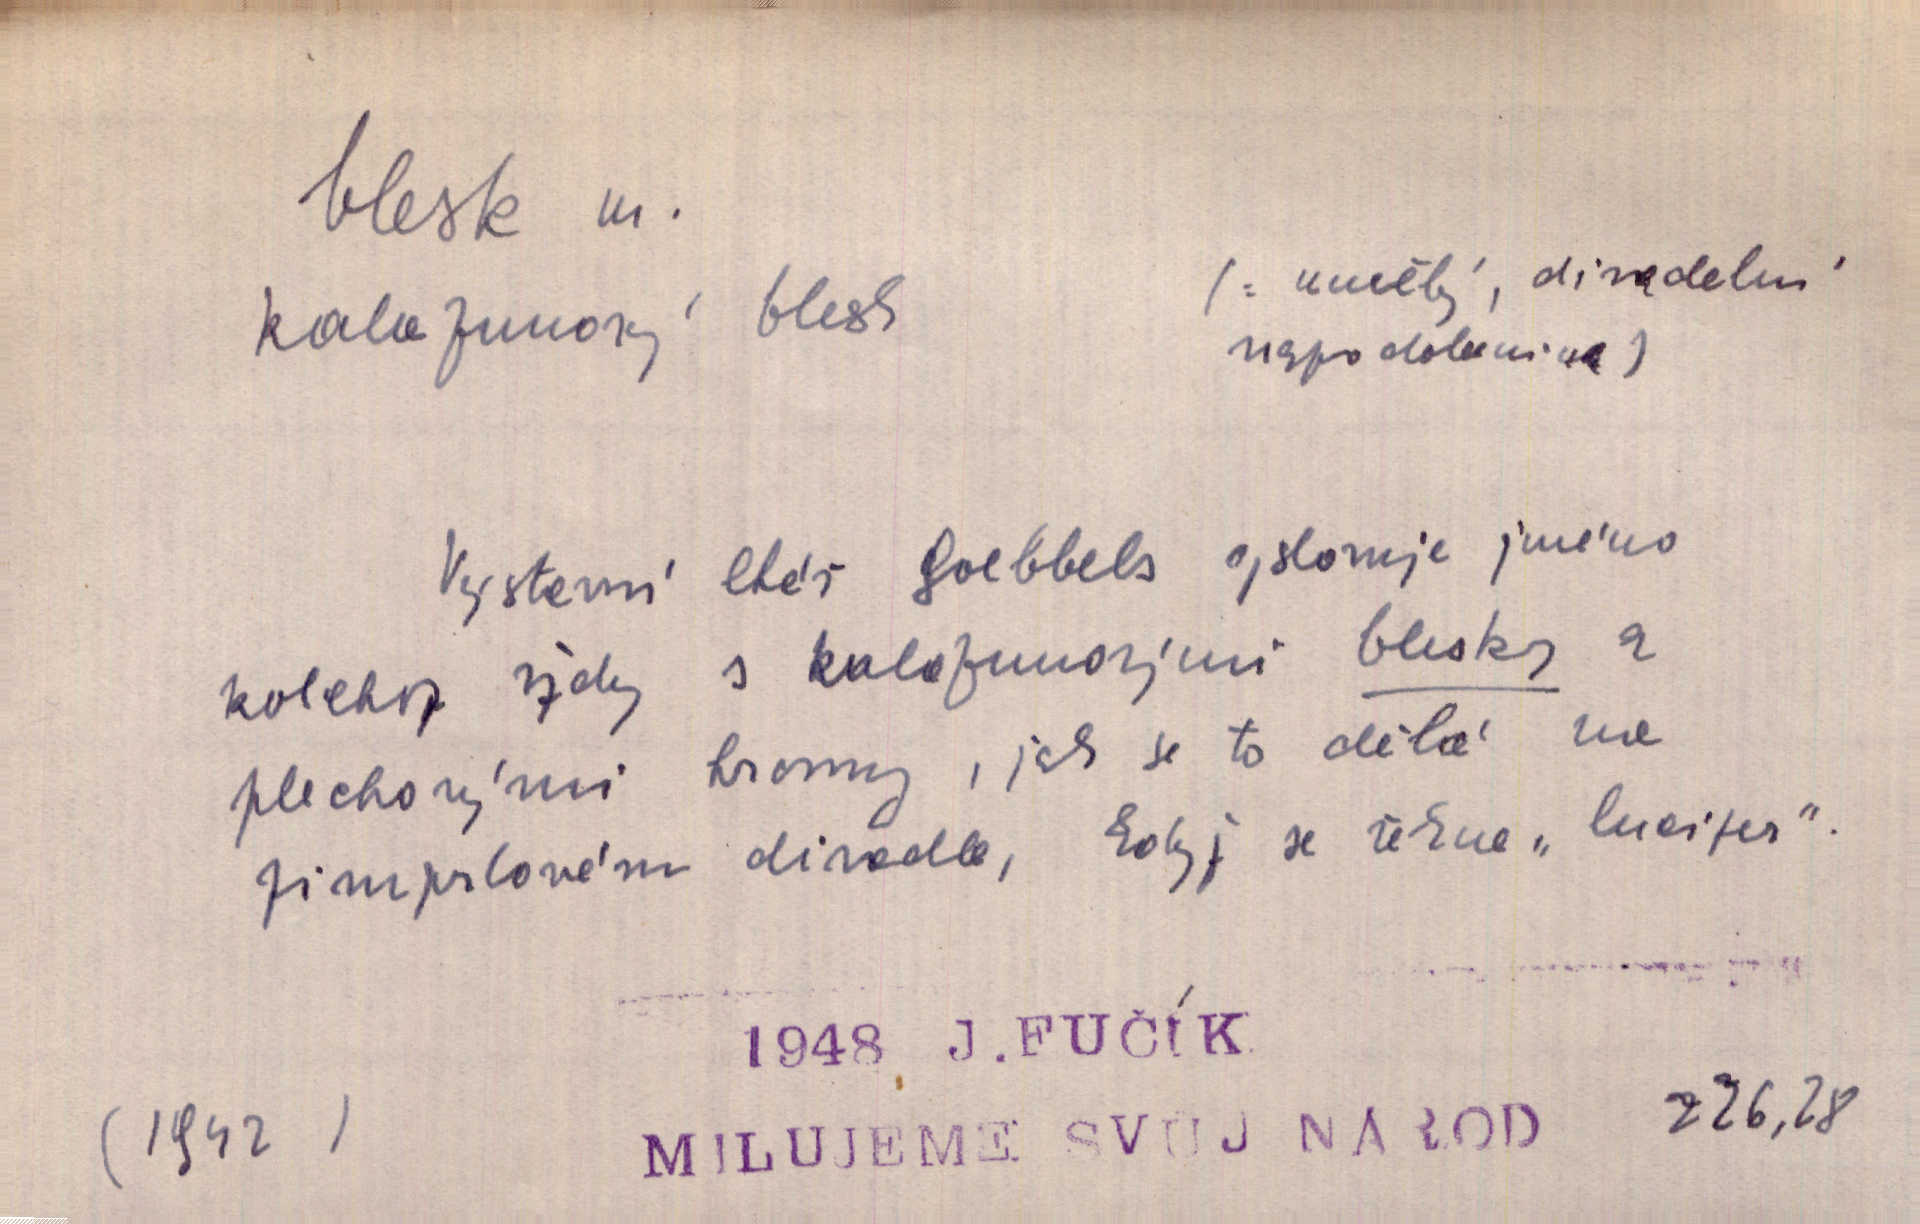 blesk m.
kalafunový blesk
(= umělý, divadelní
napodobenina)
Výstavní lhář Goebbels oslovuje jméno
vždy s kalafunovými blesky a
plechovými hromy, jak se to dělá na
pimprlovém divadle, když se řekne „lucifer“.
1948 J.FUČÍK
(1942)
MILUJEME SVUJ NAROD
226,28